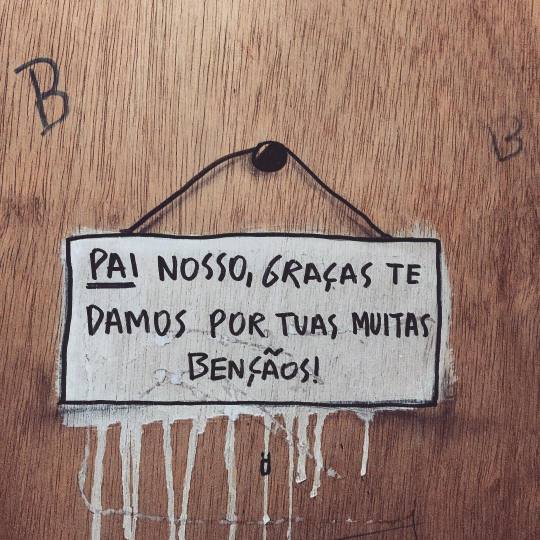 B
B
PAI NOSSO, GRAÇAS TE
DAMOS POR TUAS MUITAS
BENÇÃOS!